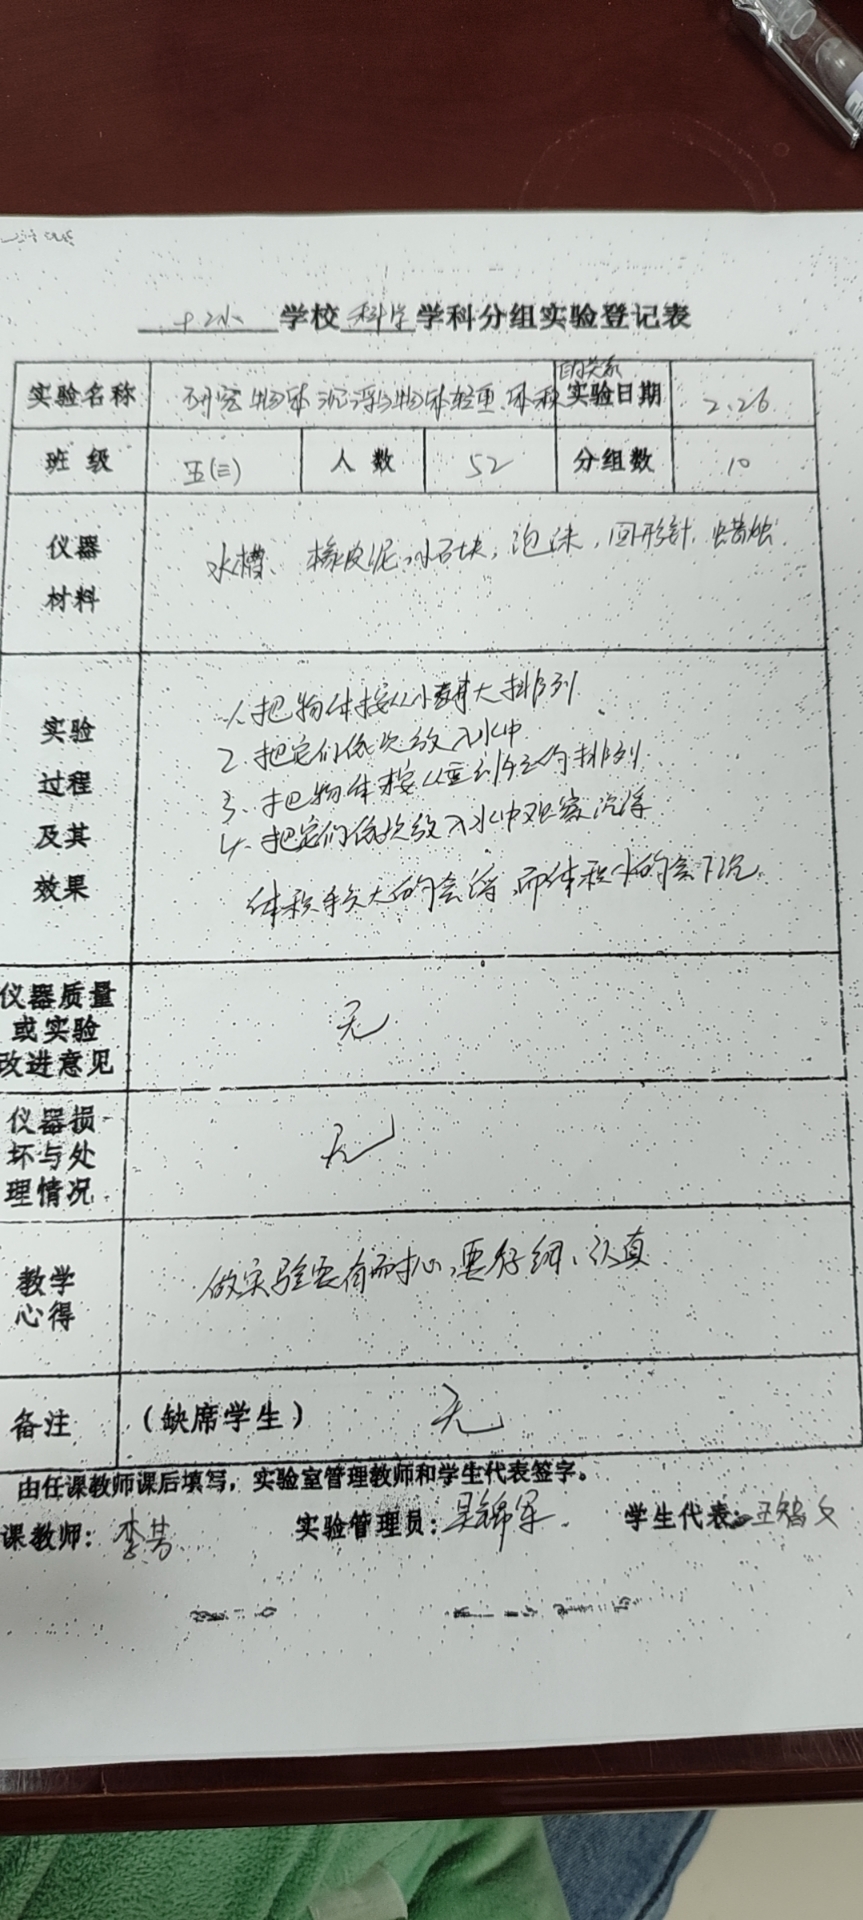 十二小 学校 科学 学科分组实验登记表
的关系
实验名称 研究物体沉浮与物体轻重、体积 实验日期 2.26
班 级 五(三) 人 数 52 分组数 10
仪器
材料
水槽、橡皮泥、小石块，泡沫，回形针，蜡烛
实验
过程
及其
效果
1、把物体按从小到大排列
2、把它们依次放入水中
3、把物体按从重到轻的排列
4、把它们依次放入水中观察沉浮
体积 大的会浮，而体积小的会下沉。
仪器质量
或实验
改进意见
无
仪器损
坏与处
理情况
无
教学
心得
做实验要有耐心，要仔细、认真
备注 (缺席学生) 无
由任课教师课后填写，实验室管理教师和学生代表签字。
课教师： 李芳 实验管理员： 吴锦军 学生代表： 王智文